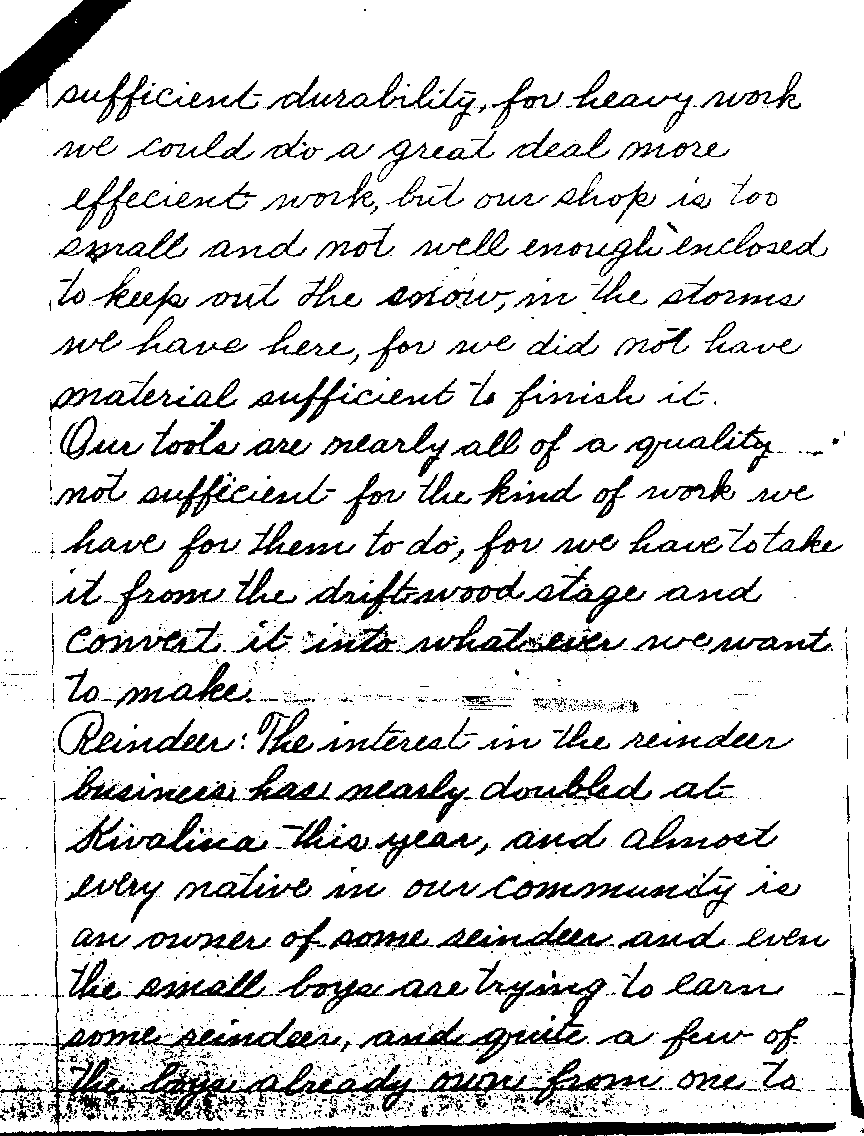 sufficient durability, for heavy work
we could do a great deal more
effecient work, but our shop is too
small and not well enough enclosed
to keep out the snow, in the storms
we have here, for we did not have
material sufficient to finish it.
Our tools are nearly all of a quality
not sufficient for the kind of work we
have for them to do, for we have to take
it from the driftwood stage and
convert it into what ever we want
to make.
Reindeer: The interest in the reindeer
business has nearly doubled at
Kivalina this year, and almost
every native in our community is
an owner of some reindeer and even
the small boys are trying to earn
some reindeer, and quite a few of
the boys already own from one to